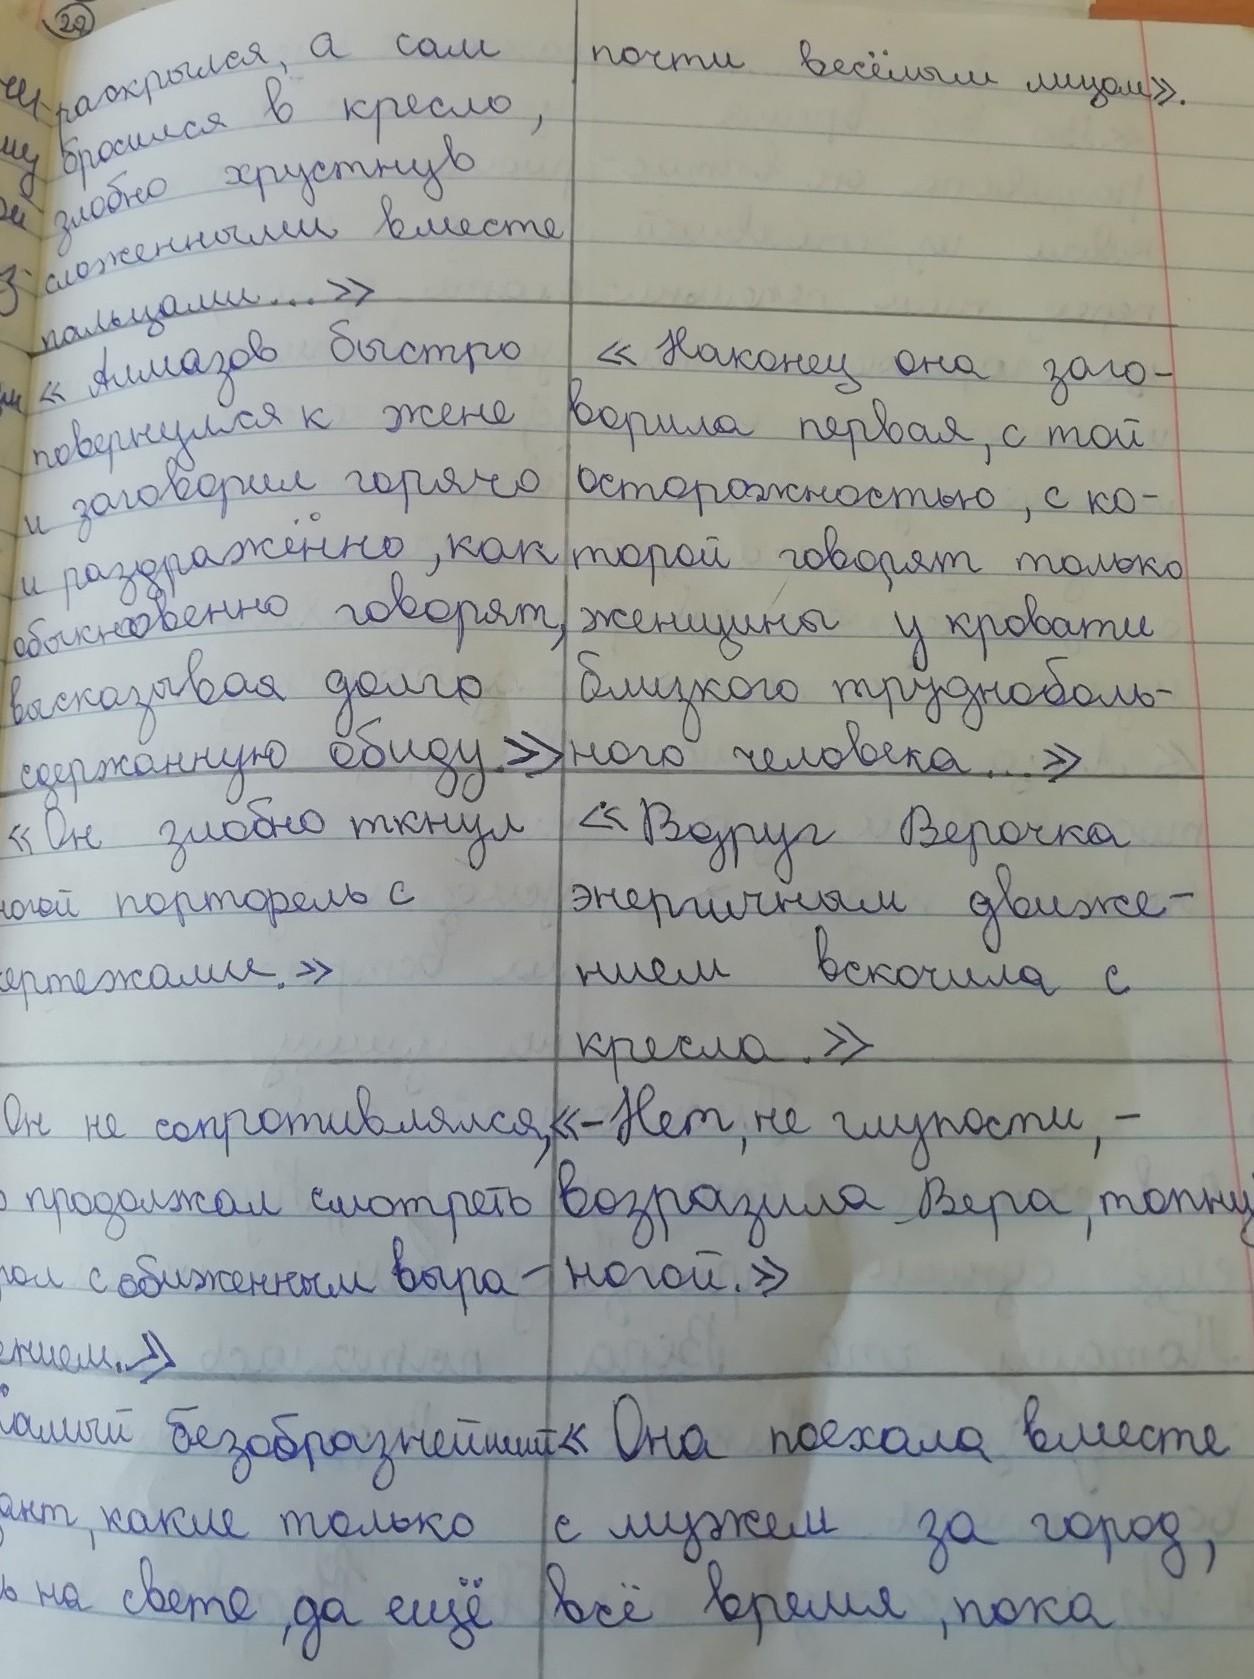 22
раскрылся, а сам
бросился в кресло,
злобно хрустнув
сложенными вместе
пальцами...»
почти весёлым лицом».
« Алмазов быстро
повернулся к жене
и заговорил горячо
и раздражённо, как
обыкновенно говорят,
высказывая долго
сдержанную обиду.»
« Наконец она заго-
ворила первая, с той
осторожностью, с ко-
торой говорят только
женщины у кровати
близкого трудноболь-
ного человека...»
«Он злобно ткнул
ногой портфель с
чертежами.»
« Вдруг Верочка
энергичным движе-
нием вскочила с
кресла.»
Он не сопротивлялся,
продолжал смотреть
с обиженным выра-
ением.»
«- Нет, не глупости, -
возразила Вера, топну
ногой.»
Самый безобразнейший
ант, какие только
ь на свете, да ещё
« Она поехала вместе
с мужем за город,
всё время, пока